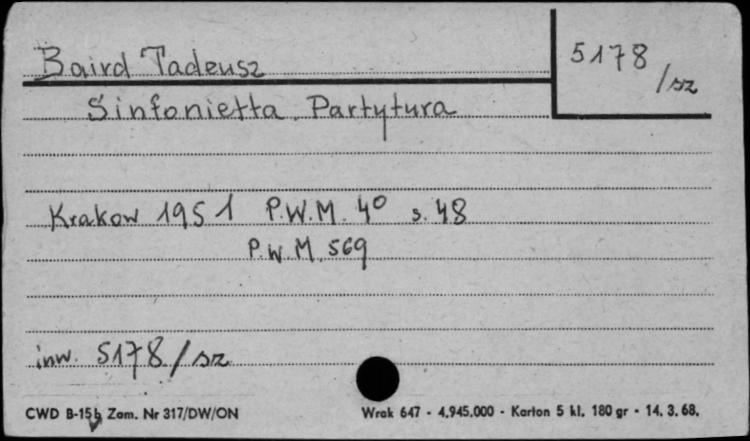 Baird Tadeusz
5178/sz
Sinfonietta. Partytura
Krakow 1951 P.W.M. 4° s. 48
P.W.M. 569
inw. 5178/sz
CWD B-15b Zam. Nr 317/DW/ON Wrak 647 - 4,945.000 - Karton 5 kl. 180 gr - 14. 3. 68.